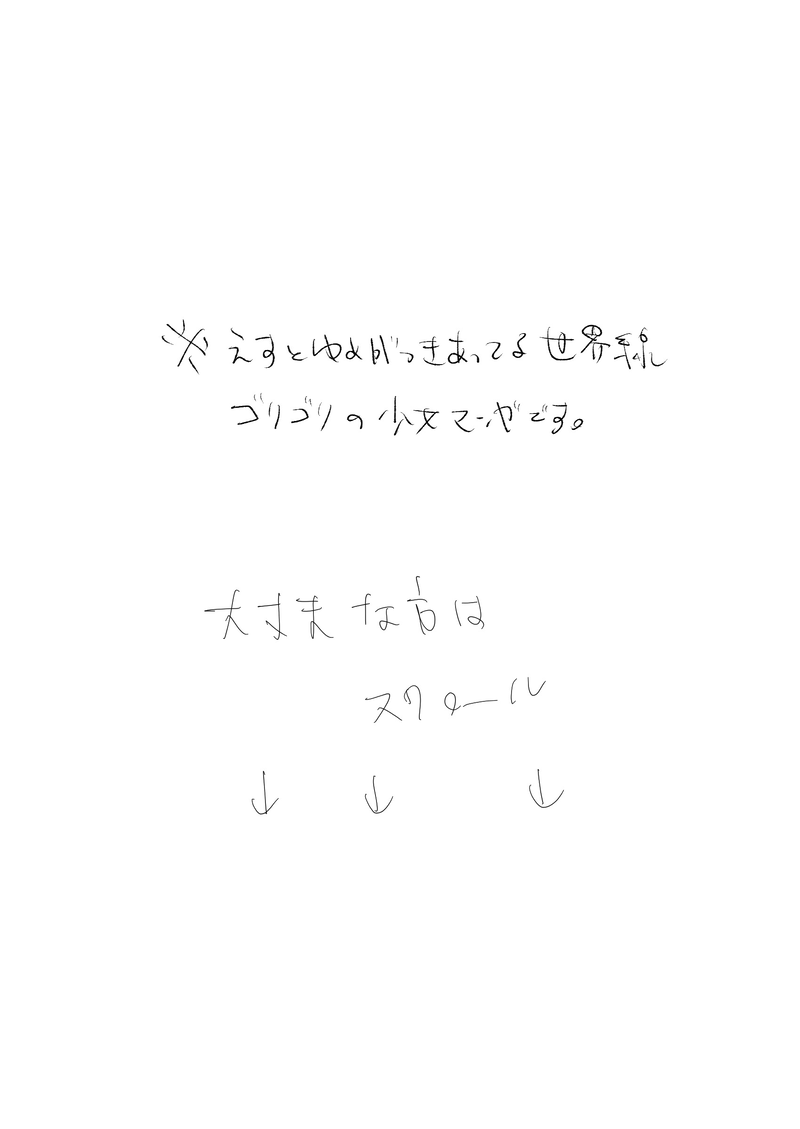 ※えすとゆめがつきあってる世界線
ゴリゴリの少女マンガです。
大丈夫な方は
スクロール
↓ ↓ ↓